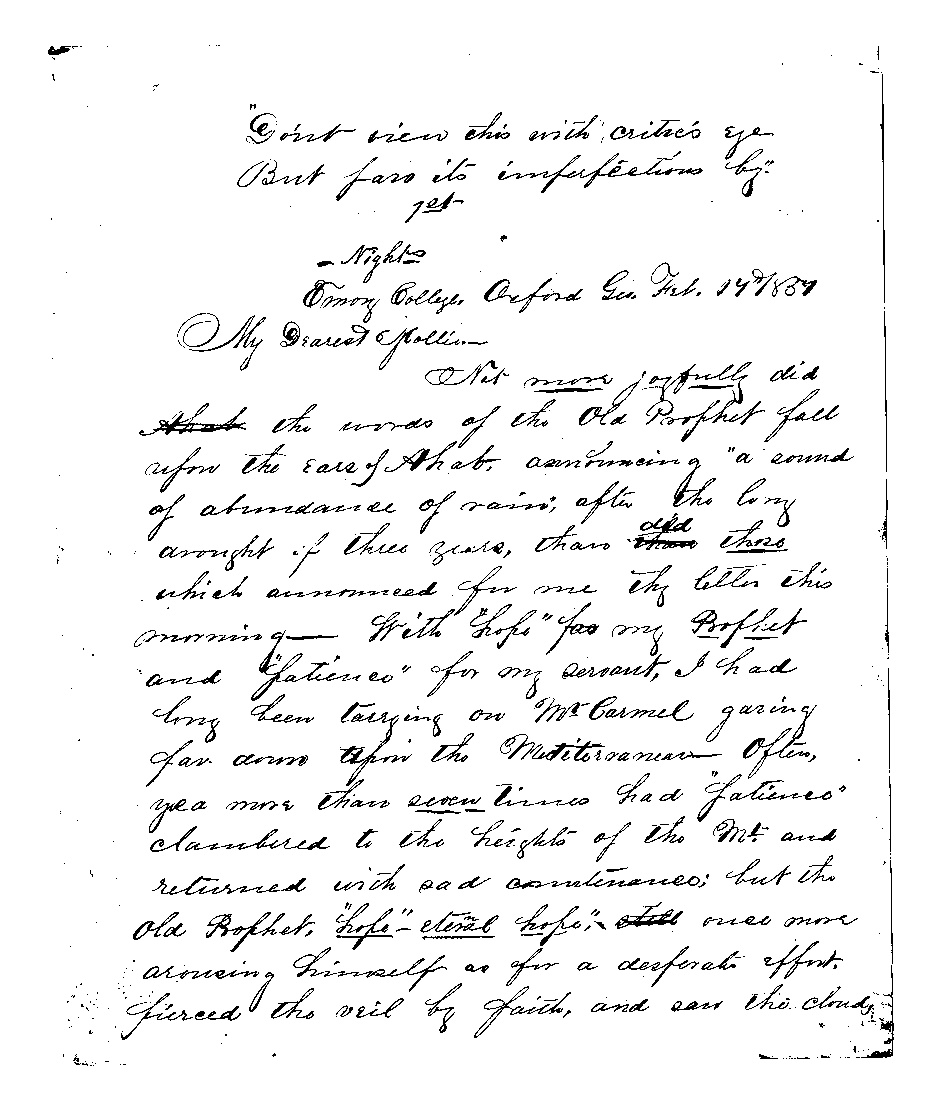 "Don't view this with critic's eye
But pass its imperfections by."
1st
– Night –
Emory College, Oxford Geo. Feb. 17th/857
My Dearest Mollie—
Not more joyfully did
Ahab the words of the Old Prophet fall
upon the ears of Ahab, announcing "a sound
of abundance of rain", after the long
drought of three years, than did than those
which announced for me thy letter this
morning— With "hope" for my Prophet
and "patience" for my servant, I had
long been tarrying on Mt. Carmel gazing
far down upon the Mediterranean— Often,
yea more than seven times had "patience"
clambered to the heights of the Mt. and
returned with sad countenance; but the
Old Prophet, "hope" – eternal hope", still once more
arousing himself as for a desperate effort,
pierced the veil by faith, and saw the cloud,